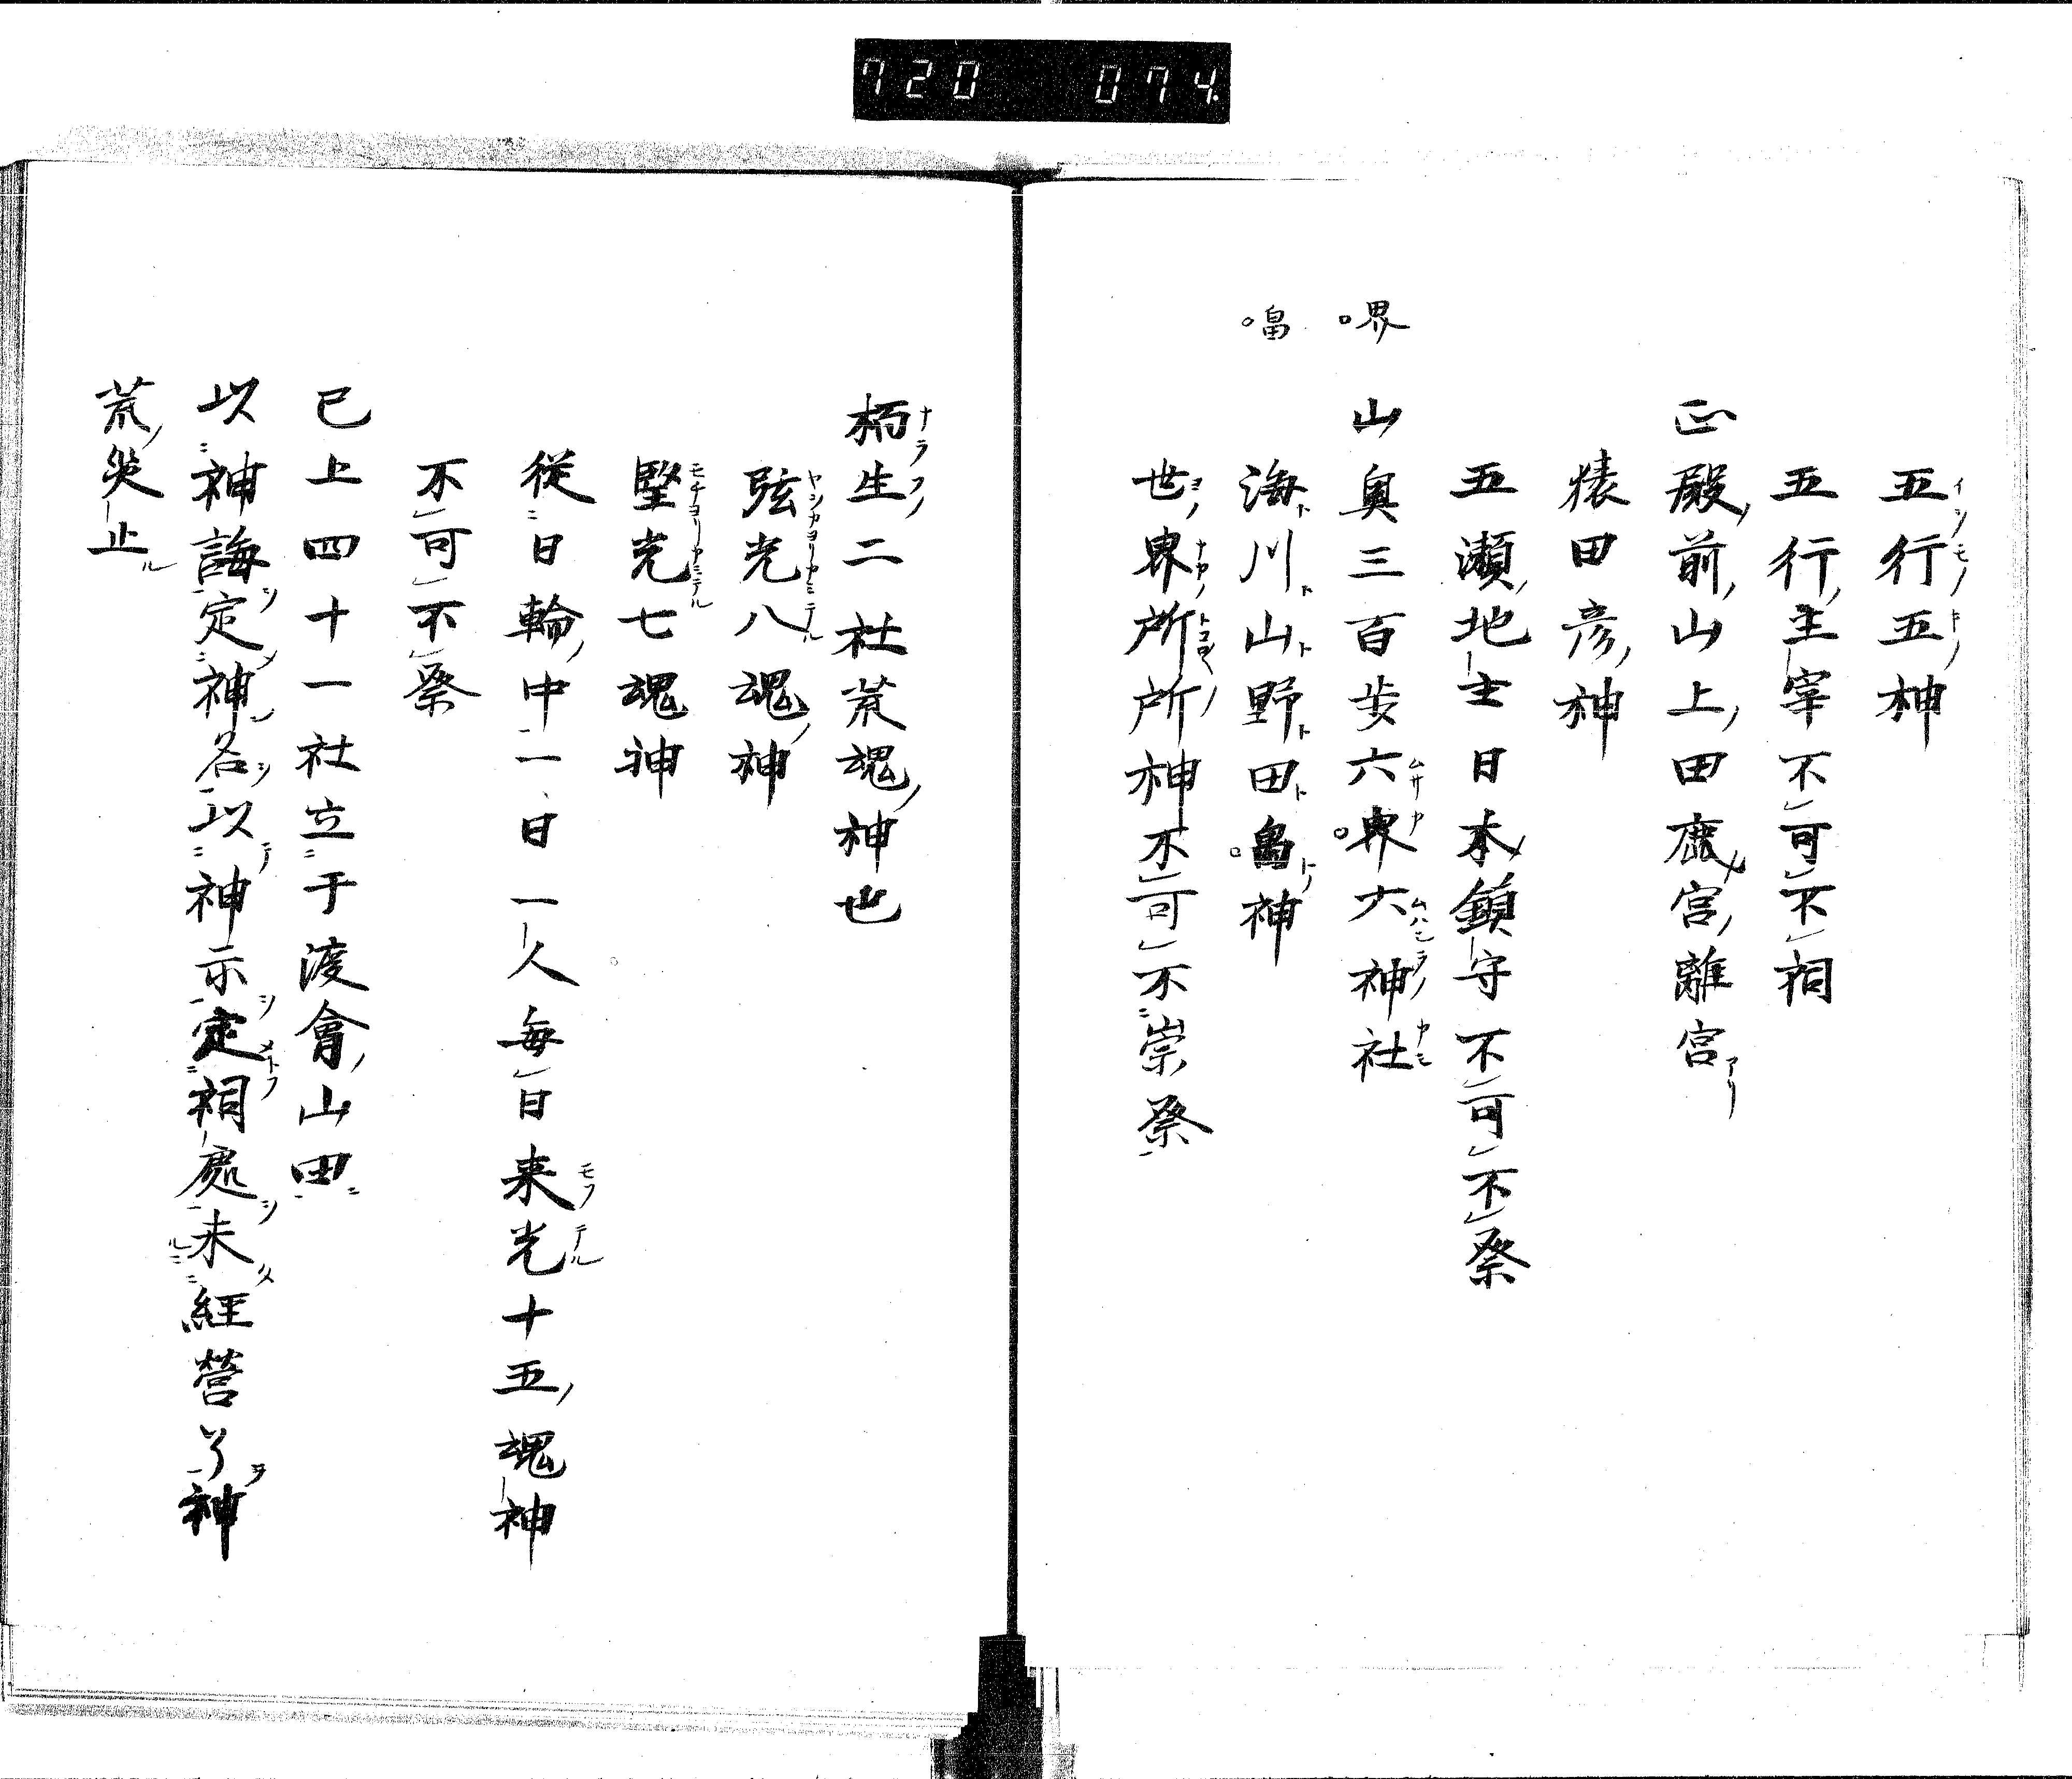 720 074
五行五神
五行主宰不可不祠
正殿前山上田鹿宮離宮
猿田彦神
五瀬地主日本鎮守不可不祭
界
山奥三百歩六界六神社
畠
海川山野田畠神
世界所所神不可不崇祭
栭生二社荒魂神也
弦光八魂神
堅光七魂神
従日輪中一日一人毎日来光十五魂神
不可不祭
已上四十一社立于渡會山田
以神誨定神名以神示定祠處未經營了神
荒災止